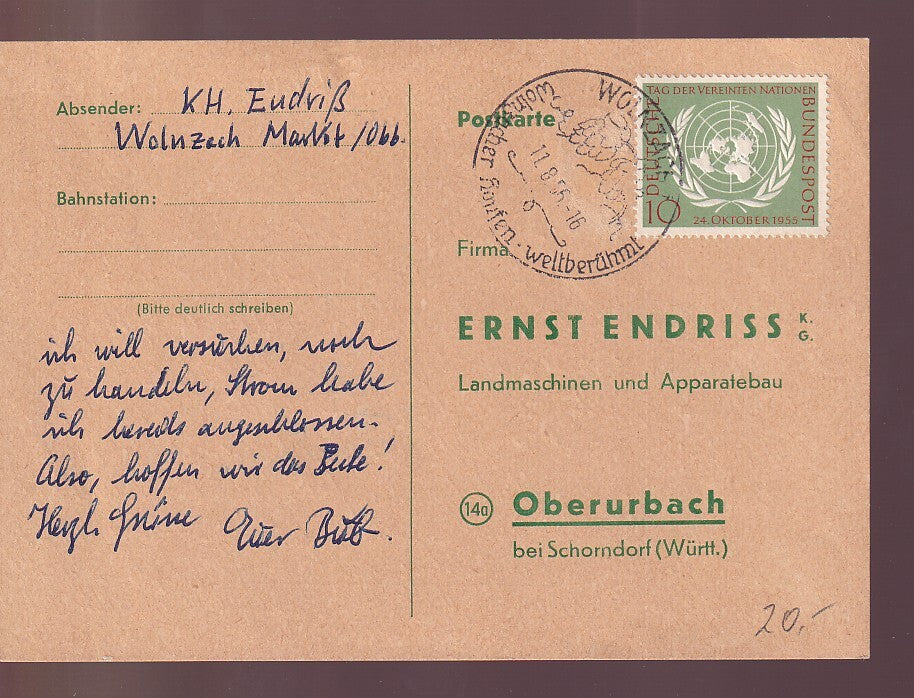 Absender: KH. Endriß
Wolnzach Markt /Obb.
Bahnstation:
(Bitte deutlich schreiben)
ich will versuchen, noch
zu handeln, Strom habe
ich bereits angeschlossen.
Also, hoffen wir das Beste!
Herzl. Grüsse Euer
Postkarte
WOLNZACH
11.8.56-16
Wolnzacher Hopfen · weltberühmt
TAG DER VEREINTEN NATIONEN
DEUTSCHE
BUNDESPOST
10
24. OKTOBER 1955
Firma
ERNST ENDRISS K.G.
Landmaschinen und Apparatebau
14a Oberurbach
bei Schorndorf (Württ.)
20.-